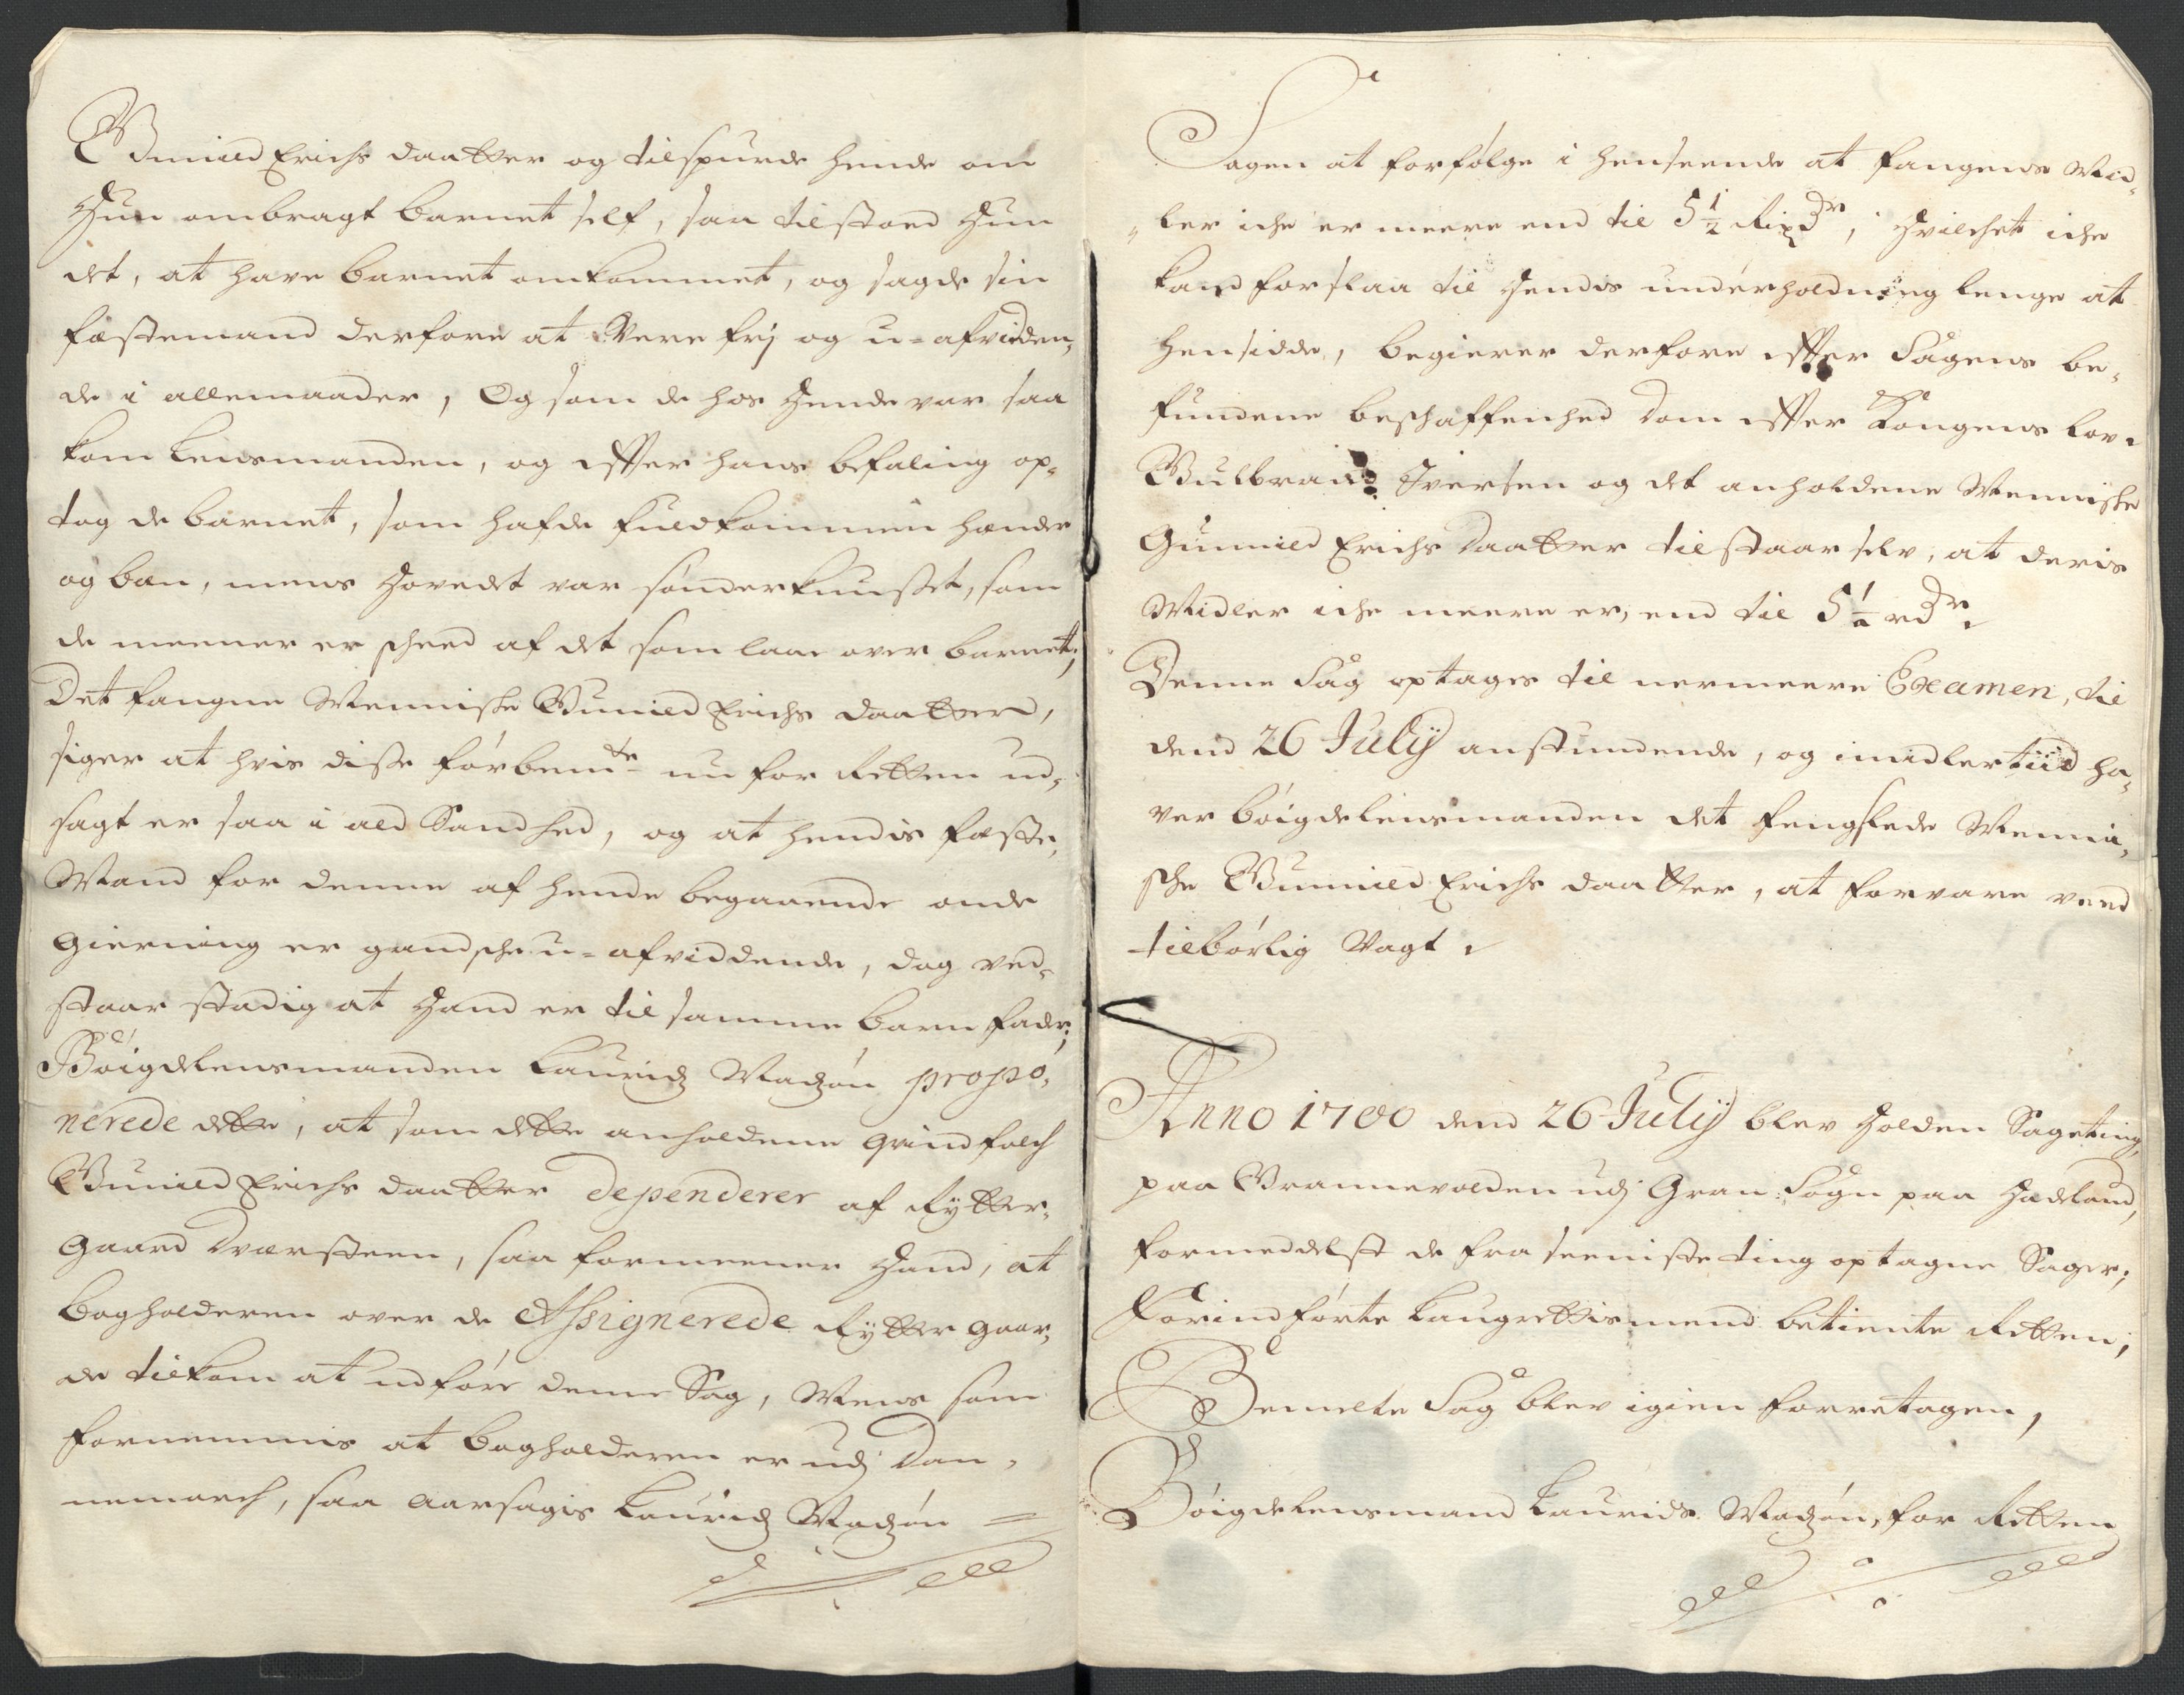 Gunnild Erichs daatter og tilspurde hende om
Hun ombragt barnet self, saa tilstoed Hun
det, at have barnet omkommet, og sagde sin
fæstemand derfore at Være frj og u-afvidden,
de i allemaader, Og som de hos Hende var saa
kom Lensmanden, og effter hans befaling op,
tog de barnet, som hafde fuldkommen hænder
og been, mens Hovedet var sønderknuset, som
de meener er scheed af det som laae over barnet;
Det fangne Menniske Gunild Erichs daatter,
siger at hvis disse forbemte nu for Retten ud,
sagt er saa i ald Sandhed, og at hendis fæste,
Mand for denne af hende begaaende onde
Gierning er gandsche u-afviddende, dog ved,
staar stadig at Hand er til samme barn fader;
Böigdelensmanden Lauridz Madzøn propo,
nerede dette, at som dette anholdene qvindfolch
Gunild Erichs daatter dependerer af Rytter,
Gaard Dværsteen, saa formeener Hand, at
bogholderen over de Assignerede Rytter gaar,
de tilkom at udføre denne Sag, Mens som
fornemmis at bogholderen er udj Dan,
nemarch, saa aarsagis Lauridz Madzøn =
Sagen at forfølge i henseende at fangens Mid,
"ler iche er meere end til 5 1/2 Rixdr, Hvilchet iche
kand forslaa til Hendis underholdning lenge at
hensidde, begierer derfore effter Sagens be,
fundene beschaffenhed Dom effter Kongens lov.
Gulbrand Iversen og det anholdene Menniske
Gunnild Erichs Daatter tilstaar selv, at deris
Midler iche meere er, end til 5 1/2 rdr.
Denne Sag optages til nermeere Examen, til
dend 26 Julij anstundende, og imidlertiid ha,
ver böigdelensmanden det fengslede Menni,
sche Gunnild Erichs daatter, at forvare veed
tilbørlig Vagt.
Anno 1700 dend 26 Julij blev Holden Sageting,
paa Grannevolden udj Gran Sogn paa Hadeland,
formeddelst de fra seeniste ting optagne Sager;
Forindførte Laugrettismend betiente Retten;
Bemelte Sag blev igien forretagen,
Böigdelensmand Laurids Madzøn, for Retten